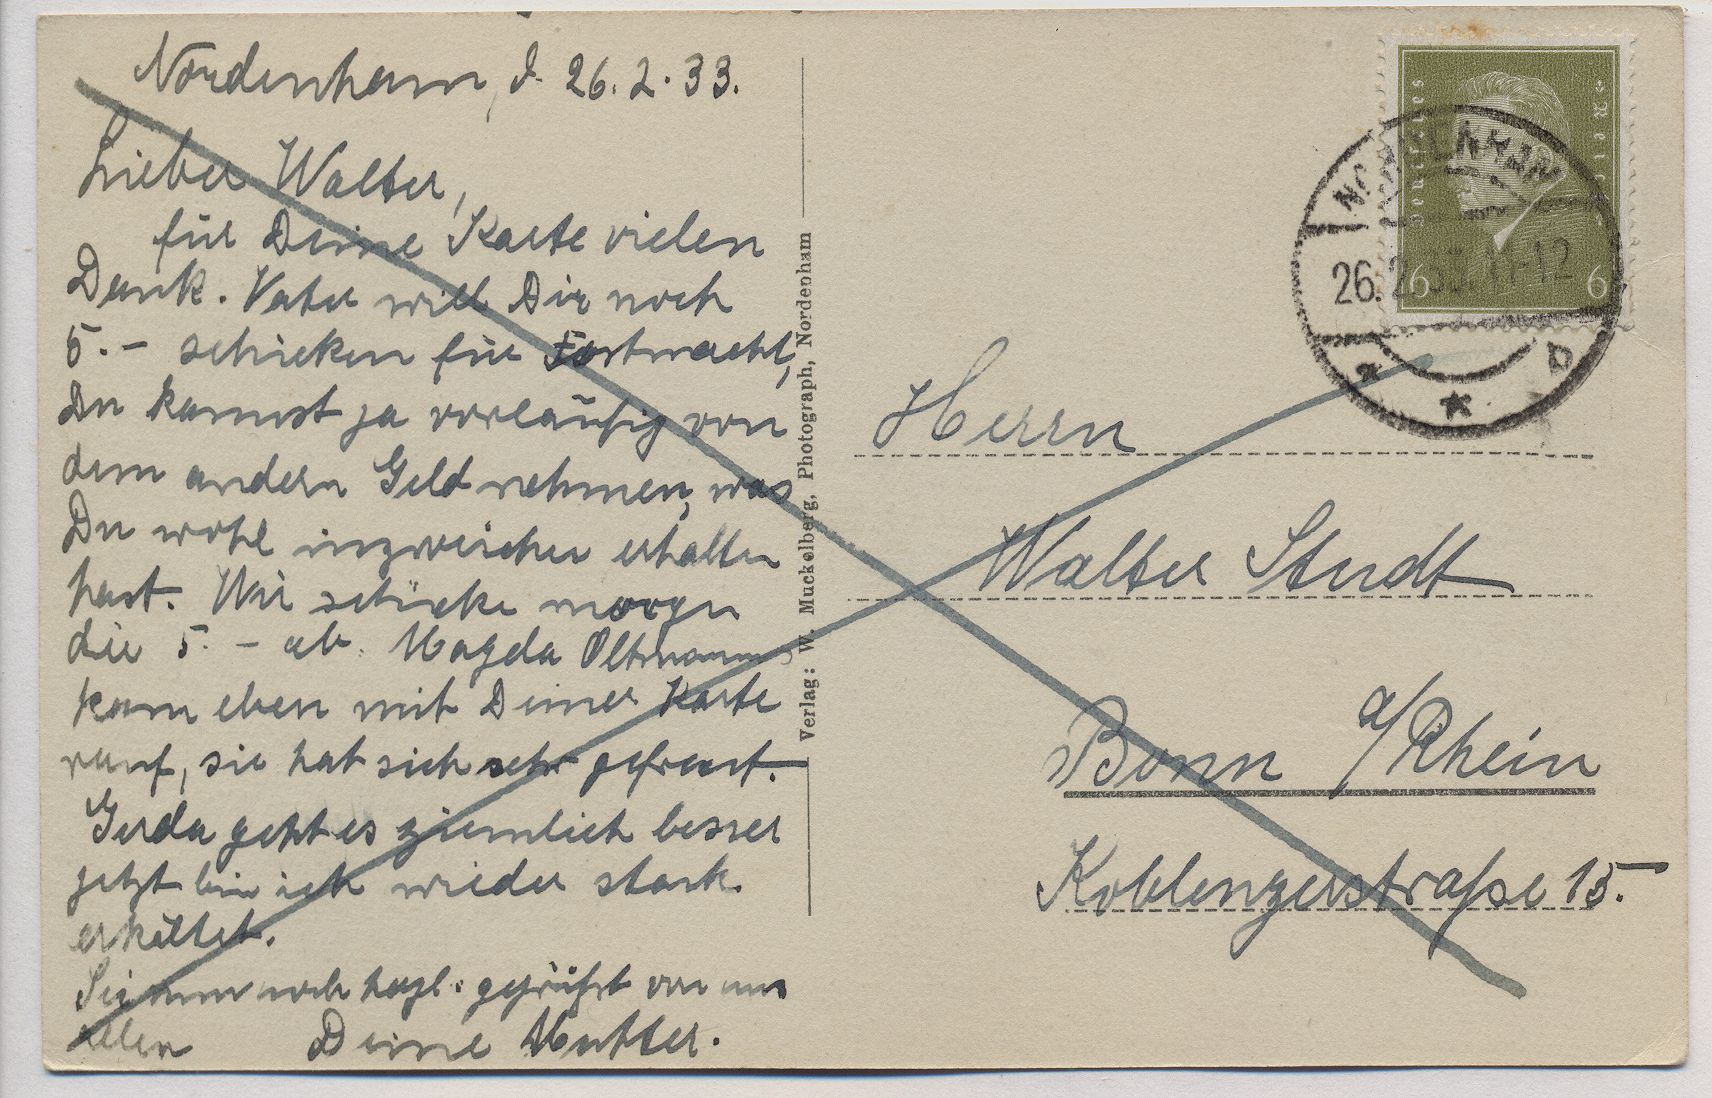 Nordenham, d. 26.2.33.
Lieber Walter,
für Deine Karte vielen
Dank. Vater will Dir noch
5.- schicken für Fastnacht,
Du kannst ja vorläufig von
dem andern Geld nehmen, was
Du wohl inzwischen erhalten
hast. Wir schicke morgen
die 5.- ab. Magda Oltmann
kam eben mit Deiner Karte
rauf, sie hat sich sehr gefreut.
Gerda geht es ziemlich besser
jetzt bin ich wieder stark
erkältet.
Sei nun noch hzgl. gegrüßt von uns
allen Deine Mutter.
Verlag: W. Muckelberg, Photograph, Nordenham
Deutsches Reich
6 6
NORDENHAM
26.2.33.11-12
* * D
Herrn
Walter Studt
Bonn a/Rhein
Koblenzerstraße 15.